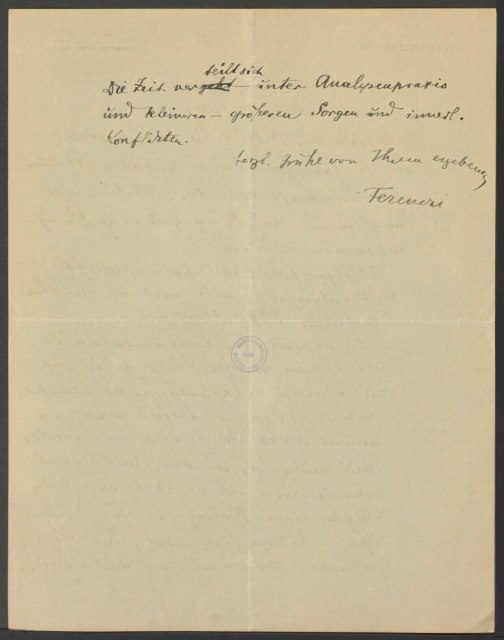 teilt sich
Die Zeit vergeht – unter Analysenpraxis
und kleineren – größeren Sorgen und innerl.
Konflikten.
herzl. Grüße von Ihrem ergebenen
Ferenczi